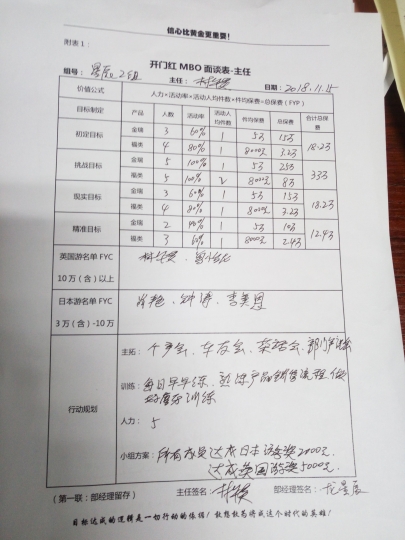 信心比黄金更重要！
附表1：
开门红 MBO 面谈表-主任
组号： 星辰2组 主任： 日期：2018.11.15
价值公式 人力×活动率×活动人均件数×件均保费=总保费（FYP）
目标制定 产品 人数 活动率 活动人均件数 件均保费 总保费 合计总保费
初定目标 金瑞 3 60% 1 5万 15万 18.2万
福类 4 80% 1 8000元 3.2万
挑战目标 金瑞 5 100% 1 5万 25万 33万
福类 5 100% 2 8000元 8万
现实目标 金瑞 3 60% 1 5万 15万 18.2万
福类 4 80% 1 8000元 3.2万
精准目标 金瑞 2 40% 1 5万 10万 12.4万
福类 3 60% 1 8000元 2.4万
英国游名单 FYC
10 万（含）以上
日本游名单 FYC
3 万（含）-10万
肖艳、钟涛、李美恩
行动规划
主拓： 个产会、车友会、茶话会、部门产说会
训练： 每日早早练，熟练产品销售流程，做
好展示训练
人力： 5
小组方案： 所有成员达成日本游奖2000元
达成英国游奖5000元
（第一联：部经理留存） 主任签名： 部经理签名： 龙星辰
目标达成的逻辑是一切行动的依据！敢想敢为将成这个时代的英雄！